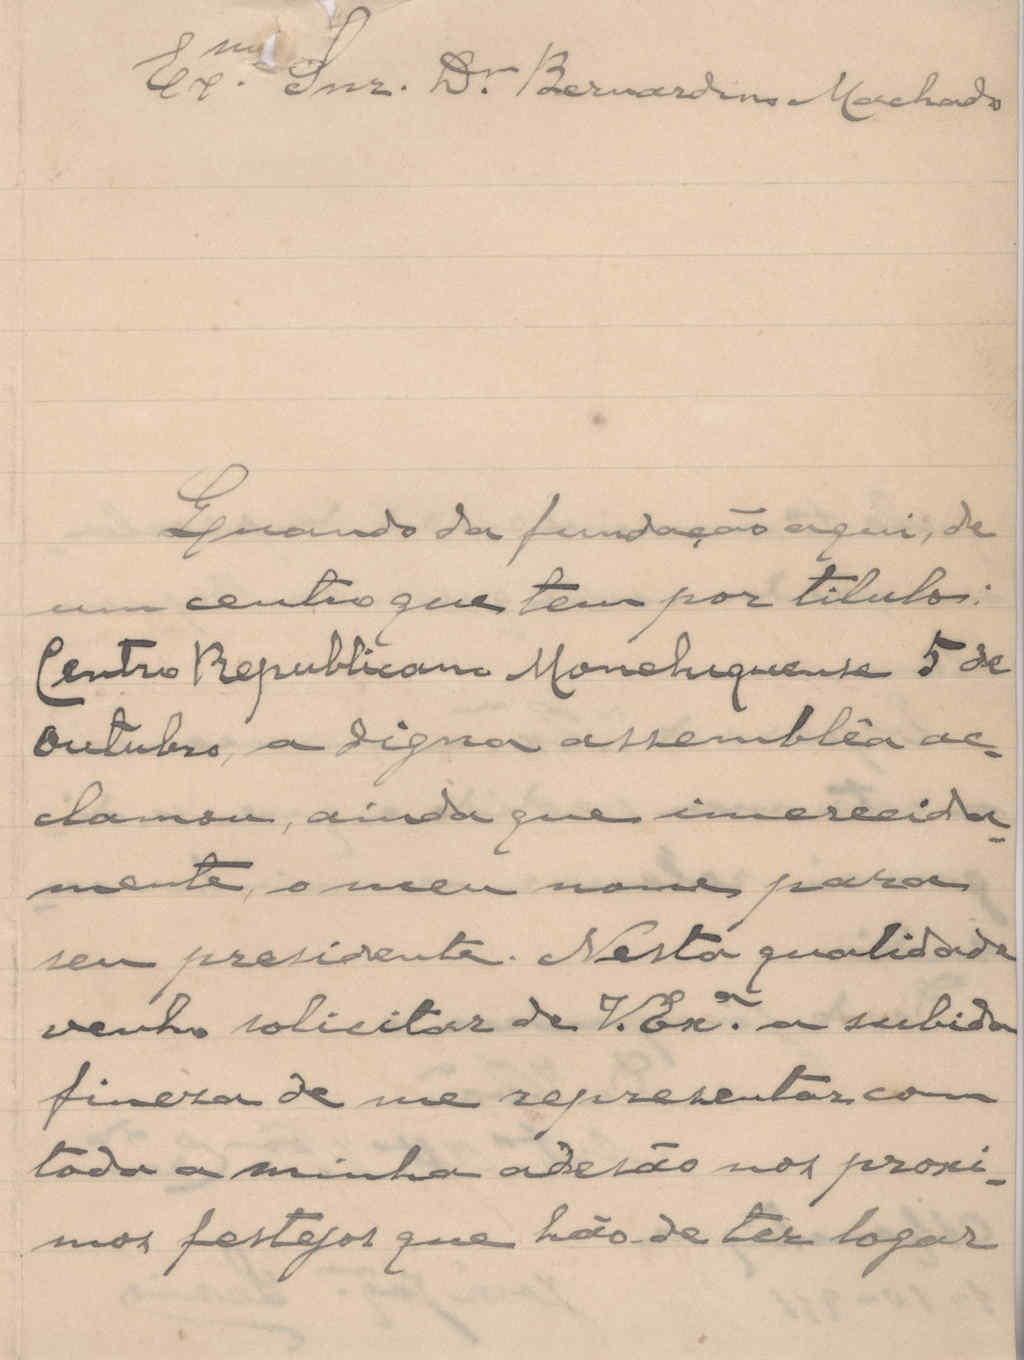 Ex.mo Snr. Dr. Bernardino Machado
Quando da fundação aqui, de
um centro que tem por titulos:
Centro Republicano Monchiquense 5 de
Outubro, a digna assemblêa ac-
clamou, ainda que imerecida-
mente, o meu nome, para
seu presidente. Nesta qualidade
venho solicitar de V. Ex.ª a subida
fineza de me representar com
toda a minha adesão nos proxi-
mos festejos que hão de ter logar